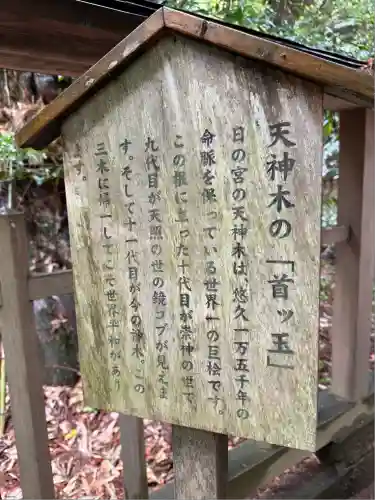 天神木の「首ッ玉」
日の宮の天神木は、悠久一万五千年の
命脈を保っている世界一の巨桧です。
この根に立った十代目が崇神の世で、
九代目が天照の世の鏡コブが見えま
す。そして十一代目が今の御木、この
三木に帰一してこそ世界平和があり
ます。